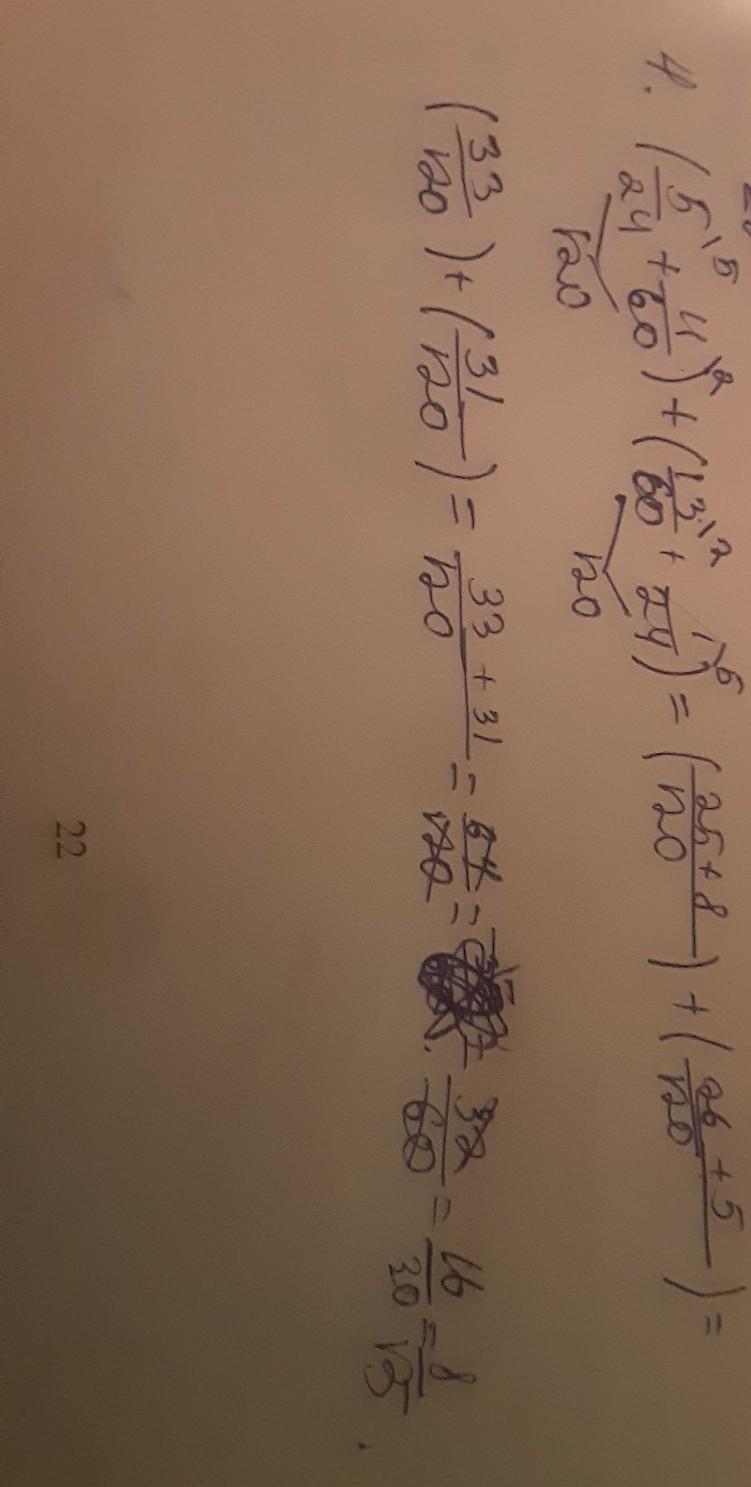 4. (5/24 \5 + 4/60 \2) + (13/60 \2 + 1/24 \5) = (25+8/120) + (26+5/120) =
120 120
(33/120) + (31/120) = 33+31/120 = 64/120 = 32/60 = 16/30 = 8/15.
22